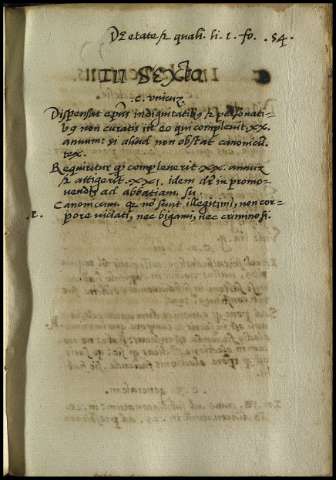 De etate et quali. li. 1. fo. .54.
In Sexto
.c. unicuz
Dispensat epus in dignitatibus et personati-
bus non curatis cu eo qui complevit .XX.
annum si aliud non obstat canonicu.
tex.
Requiritur qz compleverit XX. annuz
et attigerit .XXI. idem dr in promo-
vendis ad abbatiam, su
.2. Canonicum. qz nō sunt illegitimi, non cor-
pore viciati, nec bigami, nec criminosi.